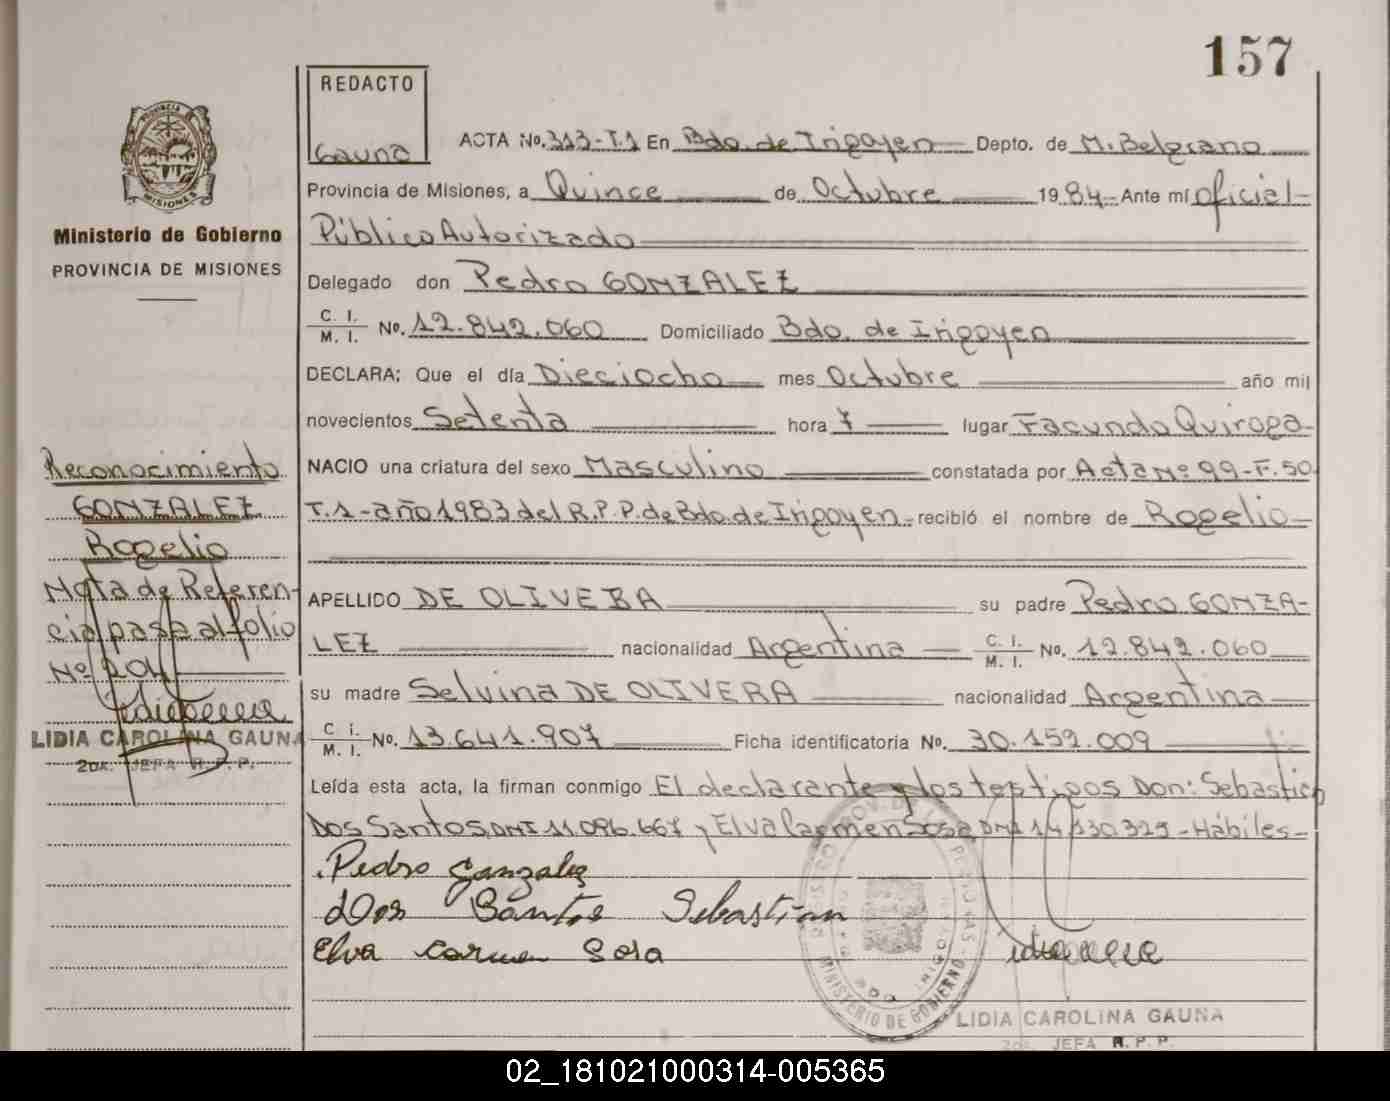 157
REDACTO
Gauna
PROVINCIA
MISIONES
Ministerio de Gobierno
PROVINCIA DE MISIONES
ACTA No. 313-T.1 En Bdo. de Irigoyen Depto. de M. Belgrano
Provincia de Misiones, a Quince de Octubre 1984- Ante mí oficial-
Público Autorizado
Delegado don Pedro GONZALEZ
C. I.
M. I. No. 12.842.060 Domiciliado Bdo. de Irigoyen
DECLARA: Que el día Dieciocho mes Octubre año mil
novecientos Setenta hora 7 lugar Facundo Quiroga-
NACIO una criatura del sexo Masculino constatada por Acta Nº 99-F.50
T.1-año 1983 del R.P.P. de Bdo. de Irigoyen- recibió el nombre de Rogelio-
APELLIDO DE OLIVERA su padre Pedro GONZA-
LEZ nacionalidad Argentina C. I.
M. I. No. 12.842.060
su madre Selvina DE OLIVERA nacionalidad Argentina
C. i.
M. I. No. 13.641.907 Ficha identificatoria No. 30.159.009
Leída esta acta, la firman conmigo El declarante y los testigos Don: Sebastian
Dos Santos, DNI 11.096.667 y Elva Carmen Sosa DNI 14.530.329-Hábiles-
Pedro Gonzalez
dos Santos Sebastian
Elva Carmen Sosa
MINISTERIO DE GOBIERNO
LIDIA CAROLINA GAUNA
2da. JEFA R. P. P.
Reconocimiento
GONZALEZ
Rogelio
Nota de Referen-
cia pasa al folio
Nº 204
LIDIA CAROLINA GAUNA
2DA. JEFA R. P. P.
02_181021000314-005365